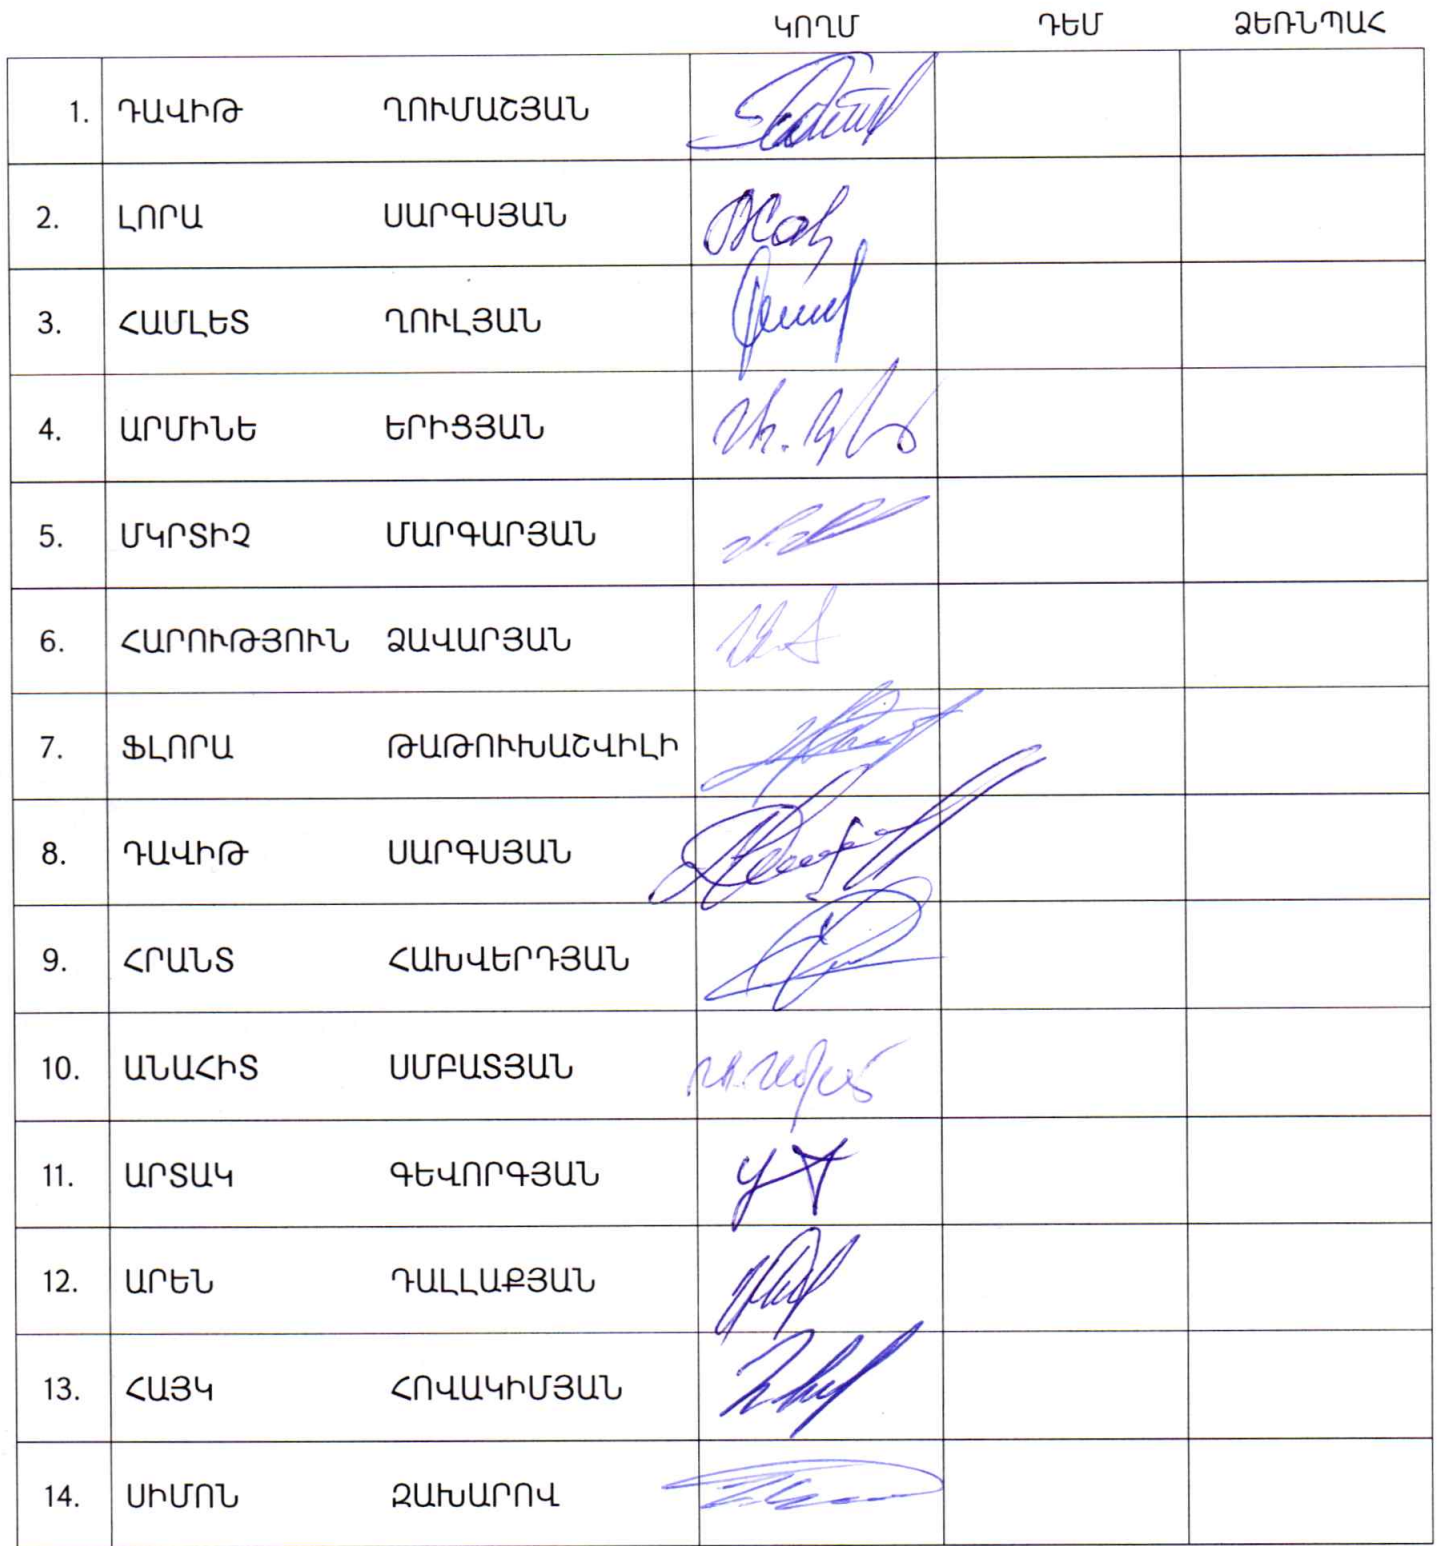 ԿՈՂՄ ԴԵՄ ՁԵՌՆՊԱՀ
1. ԴԱՎԻԹ ՂՈՒՄԱՇՅԱՆ
2. ԼՈՐԱ ՍԱՐԳՍՅԱՆ
3. ՀԱՄԼԵՏ ՂՈՒԼՅԱՆ
4. ԱՐՄԻՆԵ ԵՐԻՑՅԱՆ
5. ՄԿՐՏԻՉ ՄԱՐԳԱՐՅԱՆ
6. ՀԱՐՈՒԹՅՈՒՆ ՁԱՎԱՐՅԱՆ
7. ՖԼՈՐԱ ԹԱԹՈՒԽԱՇՎԻԼԻ
8. ԴԱՎԻԹ ՍԱՐԳՍՅԱՆ
9. ՀՐԱՆՏ ՀԱԽՎԵՐԴՅԱՆ
10. ԱՆԱՀԻՏ ՍՄԲԱՏՅԱՆ
11. ԱՐՏԱԿ ԳԵՎՈՐԳՅԱՆ
12. ԱՐԵՆ ԴԱԼԼԱՔՅԱՆ
13. ՀԱՅԿ ՀՈՎԱԿԻՄՅԱՆ
14. ՍԻՄՈՆ ԶԱԽԱՐՈՎ